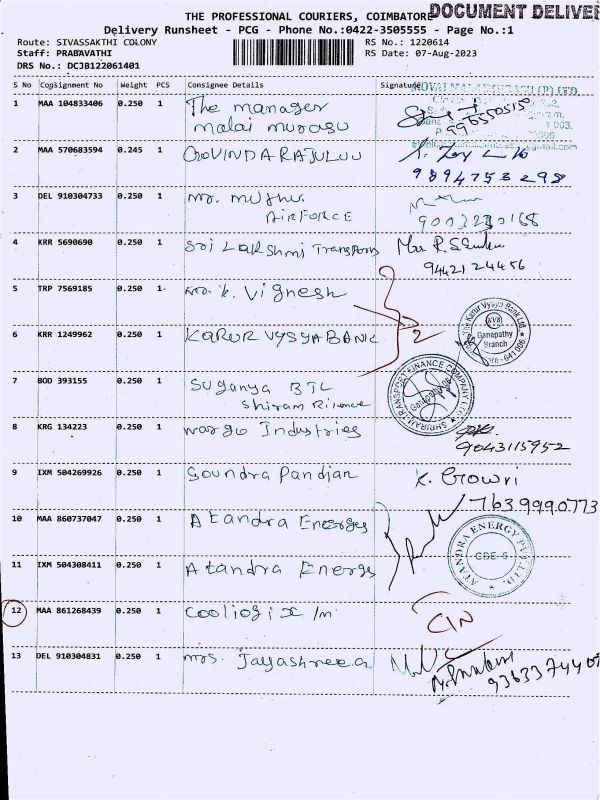 DOCUMENT DELIVE
THE PROFESSIONAL COURIERS, COIMBATORE
Delivery Runsheet - PCG - Phone No.:0422-3505555 - Page No.:1
Route: SIVASSAKTHI COLONY RS No.: 1220614
Staff: PRABAVATHI RS Date: 07-Aug-2023
DRS No.: DCJB122061401
S No Consignment No Weight PCS Consignee Details Signature
1 MAA 104833406 0.250 1 The manager
malai murasu
2 MAA 570683594 0.245 1 GOVINDARAJULUU
9894753298
3 DEL 910304733 0.250 1 mr. muthu
AIRFORCE
4 KRR 5690690 0.250 1 Sri Lakshmi Transports
9442124456
5 TRP 7569185 0.250 1 mr. k. Vignesh
2
6 KRR 1249962 0.250 1 KARUR VYSYA BANK
The Karur Vysya Bank Ltd
KVB
Ganapathy
Branch
641 006
7 BOD 393155 0.250 1 Suganya BTL
Shriram
SHRIRAM TRANSPORT FINANCE COMPANY LTD
8 KRG 134223 0.250 1 wargo Industries
9043115952
9 IXM 504269926 0.250 1 Soundra Pandian K. Gowri
7639990773
10 MAA 860737047 0.250 1 Atandra Energy
ATANDRA ENERGY PVT. LTD.
CBE-6
11 IXM 504308411 0.250 1 Atandra Energy
12 MAA 861268439 0.250 1 Coologix /m
CIN
13 DEL 910304831 0.250 1 mrs. Jayashree.a